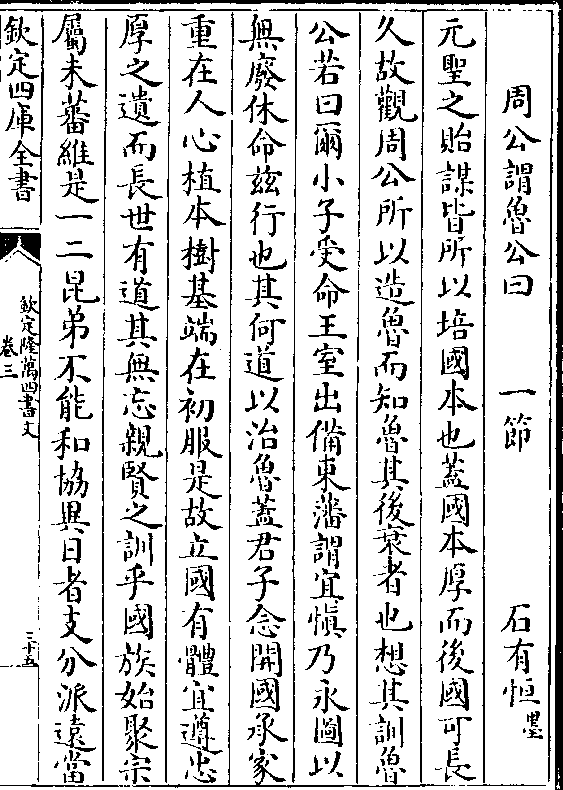 周公謂魯公曰　一節　石有恒墨
元聖之貽謀皆所以培國本也蓋國本厚而後國可長
久故觀周公所以造魯而知魯其後衰者也想其訓魯
公若曰爾小子受命王室出備東藩謂宜愼乃永圖以
無廢休命茲行也其何道以治魯蓋君子念開國承家
重在人心植本樹基端在初服是故立國有體宜遵忠
厚之遺而長世有道其無忘親賢之訓乎國族始聚宗
屬未蕃維是一二昆弟不能和協異日者支分派遠當
欽定四庫全書
欽定隆萬四書文
卷三
三十五